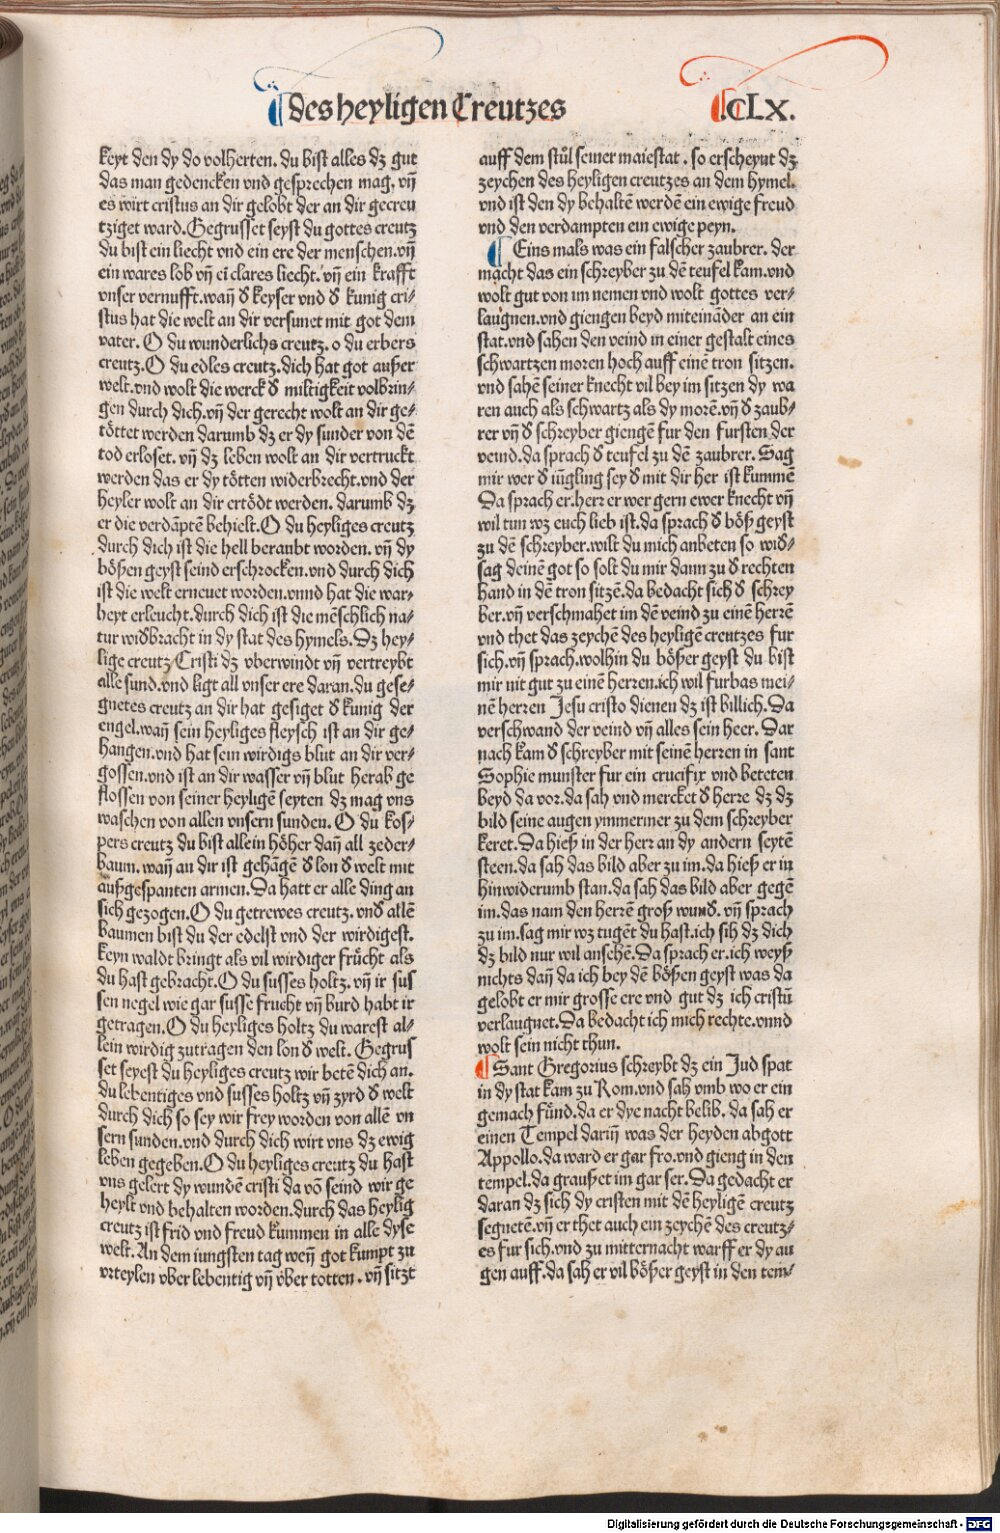 des heyligen Creutzes
.CLX.
keyt den dy do volherten. du bist alles dz gut
das man gedencken vnd gesprechen mag. vn̄
es wirt cristus an dir gelobt der an dir gecreu
tziget ward. Gegrusset seyst du gottes creutz
du bist ein liecht vnd ein ere der menschen. vn̄
ein wares lob vn̄ ei clares liecht. vn̄ ein krafft
vnser vernufft. wan̄ d̕ keyser vnd d̕ kunig cri⸗
stus hat die welt an dir versunet mit got dem
vater. O du wunderlichs creutz. o du erbers
creutz. O du edles creutz. dich hat got außer
welt. vnd wolt die werck d̕ miltigkeit volbrin⸗
gen durch dich. vn̄ der gerecht wolt an dir ge⸗
töttet werden darumb dz er dy sunder von dē
tod erloset. vn̄ dz leben wolt an dir vertruckt
werden das er dy tötten widerbrecht. vnd der
heyler wolt an dir ertödt werden. darumb dz
er die verdāptē behielt. O du heyliges creutz
durch dich ist die hell beraubt worden. vn̄ dy
bößen geyst seind erschrocken. vnd durch dich
ist die welt erneuet worden. vnnd hat die war⸗
heyt erleucht. durch dich ist die mēschlich na⸗
tur wid̕bracht in dy stat des hymels. Dz hey⸗
lige creutz Cristi dz vberwindt vn̄ vertreybt
alle sund. vnd ligt all vnser ere daran. du gese⸗
gnetes creutz an dir hat gesiget d̕ kunig der
engel. wan̄ sein heyliges fleysch ist an dir ge⸗
hangen. vnd hat sein wirdigs blut an dir ver⸗
gossen. vnd ist an dir wasser vn̄ blut herab ge
flossen von seiner heyligē seyten dz mag vns
waschen von allen vnsern sunden. O du kos⸗
pers creutz du bist allein höher dan̄ all zeder⸗
baum. wan̄ an dir ist gehāgē d̕ lon d̕ welt mit
außgespanten armen. Da hatt er alle ding an
sich gezogen. O du getrewes creutz. vnd̕ allē
baumen bist du der edelst vnd der wirdigest.
keyn waldt bringt als vil wirdiger frücht als
du hast gebracht. O du susses holtz. vn̄ ir sus
sen negel wie gar susse frucht vn̄ burd habt ir
getragen. O du heyliges holtz du warest al⸗
lein wirdig zutragen den lon d̕ welt. Gegrus
set seyest du heyliges creutz wir betē dich an.
du lebentiges vnd susses holtz vn̄ zyrd d̕ welt
durch dich so sey wir frey worden von allē vn
sern sunden. vnd durch dich wirt vns dz ewig
leben gegeben. O du heyliges creutz du hast
vns gelert dy wundē cristi da vō seind wir ge
heylt vnd behalten worden. durch das heylig
creutz ist frid vnd freud kummen in alle dyse
welt. An dem iungsten tag wen̄ got kumpt zu
vrteylen vber lebentig vn̄ vber totten. vn̄ sitzt
auff dem stůl seiner maiestat. so erscheynt dz
zeychen des heyligen creutzes an dem hymel.
vnd ist den dy behaltē werdē ein ewige freud
vnd den verdampten ein ewige peyn.
¶ Eins mals was ein falscher zaubrer. der
macht das ein schreyber zu dē teufel kam. vnd
wolt gut von im nemen vnd wolt gottes ver⸗
laugnen. vnd giengen beyd miteināder an ein
stat. vnd sahen den veind in einer gestalt eines
schwartzen moren hoch auff einē tron sitzen.
vnd sahē seiner knecht vil bey im sitzen dy wa
ren auch als schwartz als dy morē. vn̄ d̕ zaub⸗
rer vn̄ d̕ schreyber giengē fur den fursten der
veind. da sprach d̕ teufel zu dē zaubrer. Sag
mir wer d̕ iūgling sey d̕ mit dir her ist kummē
Da sprach er. herr er wer gern ewer knecht vn̄
wil tun wz euch lieb ist. da sprach d̕ böß geyst
zu dē schreyber. wilt du mich anbeten so wid̕⸗
sag deinē got so solt du mir dann zu d̕ rechten
hand in dē tron sitzē. da bedacht sich d̕ schrey
ber. vn̄ verschmahet im dē veind zu einē herrē
vnd thet das zeychē des heyligē creutzes fur
sich. vn̄ sprach. wolhin du bößer geyst du bist
mir nit gut zu einē herren. ich wil furbas mei⸗
nē herren Jesu cristo dienen dz ist billich. Da
verschwand der veind vn̄ alles sein heer. Dar
nach kam d̕ schreyber mit seinē herren in sant
Sophie munster fur ein crucifix vnd beteten
beyd da vor. da sah vnd mercket d̕ herre dz dz
bild seine augen ymmermer zu dem schreyber
keret. Da hieß in der herr an dy andern seytē
steen. da sah das bild aber zu im. da hieß er in
hinwiderumb stan. da sah das bild aber gegē
im. das nam den herrē groß wund̕. vn̄ sprach
zu im. sag mir wz tugēt du hast. ich sih dz dich
dz bild nur wil ansehē. Da sprach er. ich weyß
nichts dan̄ da ich bey dē bößen geyst was da
gelobt er mir grosse ere vnd gut dz ich cristū
verlaugnet. Da bedacht ich mich rechte. vnnd
wolt sein nicht thun.
¶ Sant Gregorius schreybt dz ein Jud spat
in dy stat kam zu Rom. vnd sah vmb wo er ein
gemach fünd. da er dye nacht belib. da sah er
einen Tempel darin̄ was der heyden abgott
Appollo. da ward er gar fro. vnd gieng in den
tempel. da graußet im gar ser. Da gedacht er
daran dz sich dy cristen mit dē heyligē creutz
segnetē. vn̄ er thet auch ein zeychē des creutz⸗
es fur sich. vnd zu mitternacht warff er dy au
gen auff. da sah er vil bößer geyst in den tem⸗
Digitalisierung gefördert durch die Deutsche Forschungsgemeinschaft - DFG